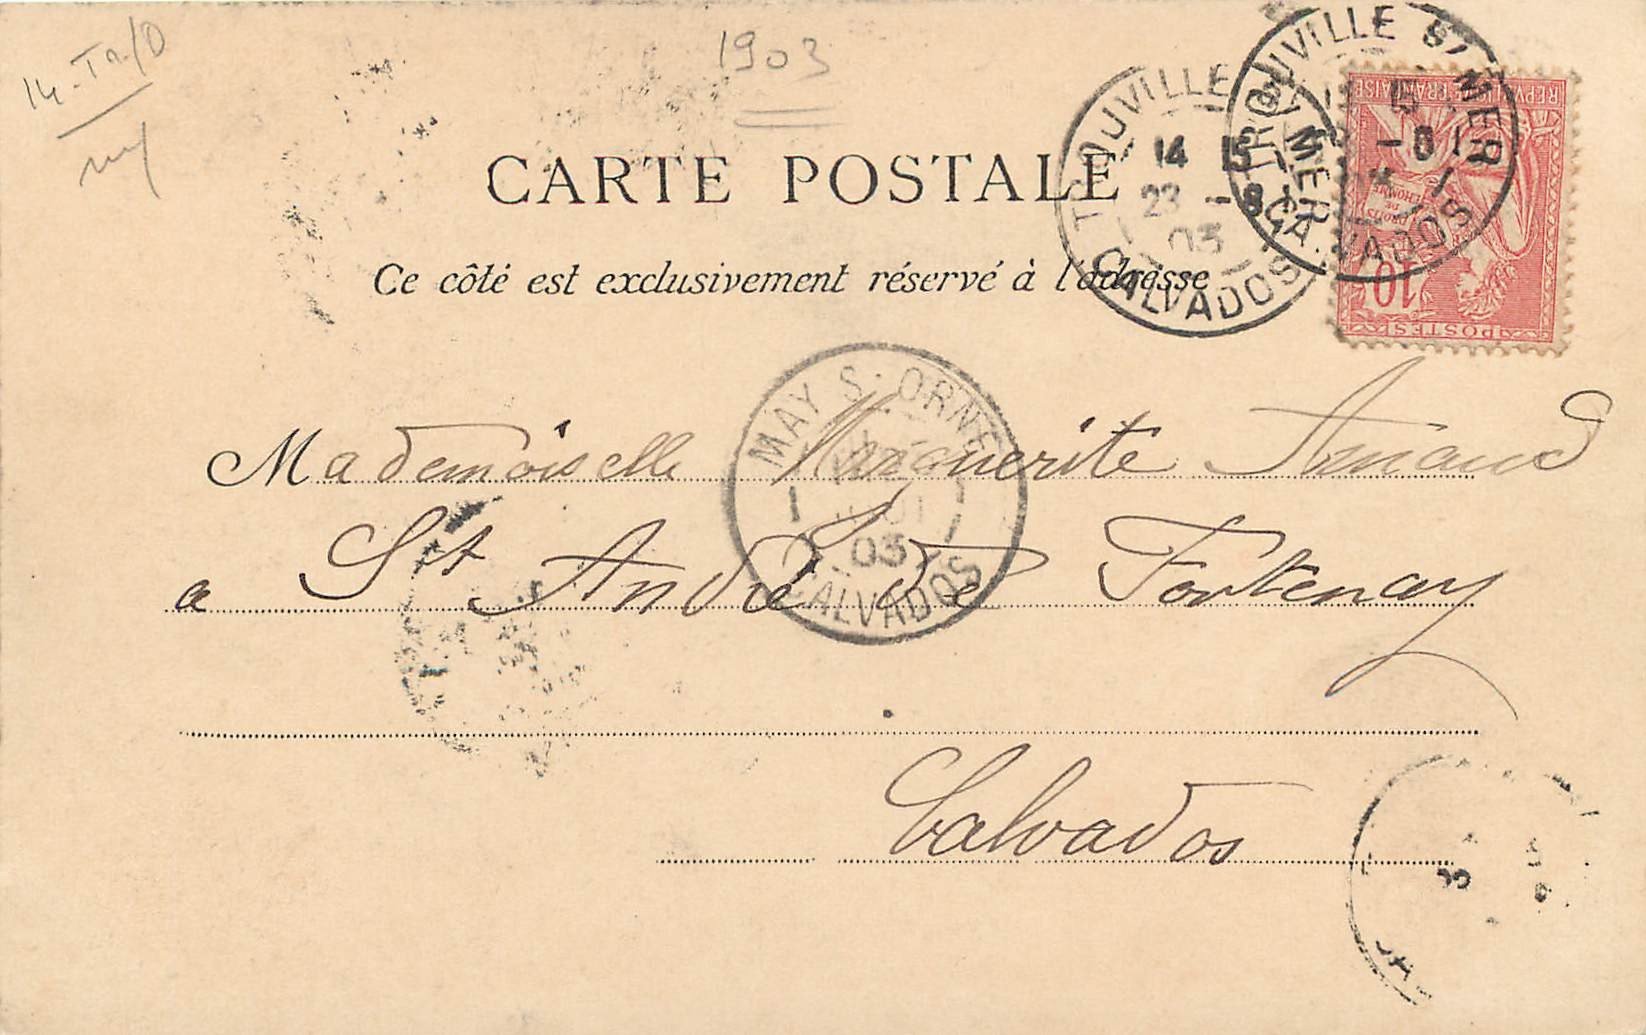 14-Tr/D
1903
CARTE POSTALE
Ce côté est exclusivement réservé à l'adresse
TROUVILLE S/ MER
14 15
23 -8
03
CALVADOS
TROUVILLE S/ MER
15
-8
CALVADOS
REPUBLIQUE FRANÇAISE
DROITS DE L'HOMME
10
POSTES
MAY S. ORNE
03
CALVADOS
Mademoiselle Marguerite Arnaud
a St André de Fontenay
Calvados